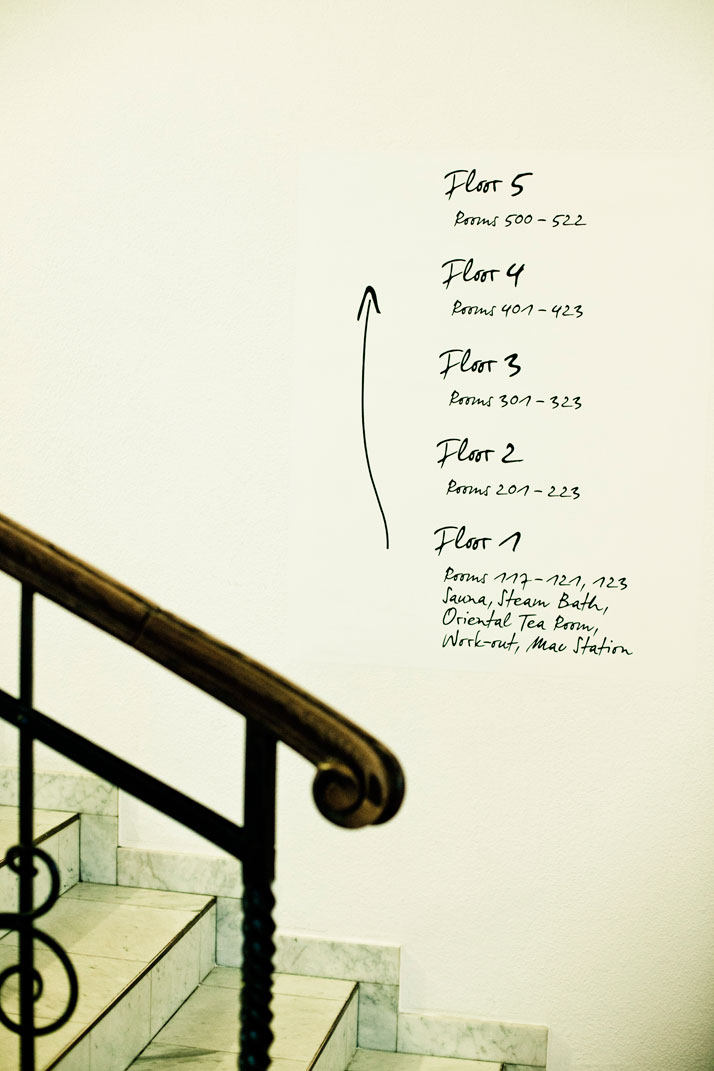 Floor 5
Rooms 500-522
Floor 4
Rooms 401-423
Floor 3
Rooms 301-323
Floor 2
Rooms 201-223
Floor 1
Rooms 117-121, 123
Sauna, Steam Bath,
Oriental Tea Room,
Work-out, Mac Station